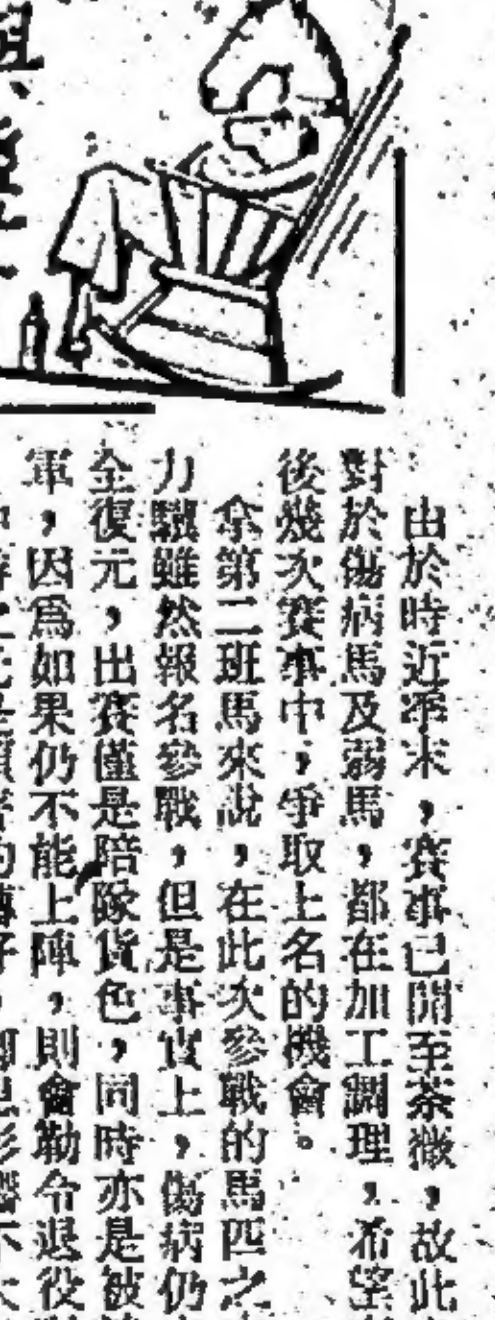 由於時近季末，賽事已開至荼薇，故此
對於傷病馬及弱馬，都在加工調理，希望
後幾次賽事中，爭取上名的機會。
余第二班馬來說，在此次參戰的馬匹之
力驥雖然報名參戰，但是事實上，傷病仍
全復元，出賽僅是陪隊貨色，同時亦是被
軍，因爲如果仍不能上陣，則會勒令退役